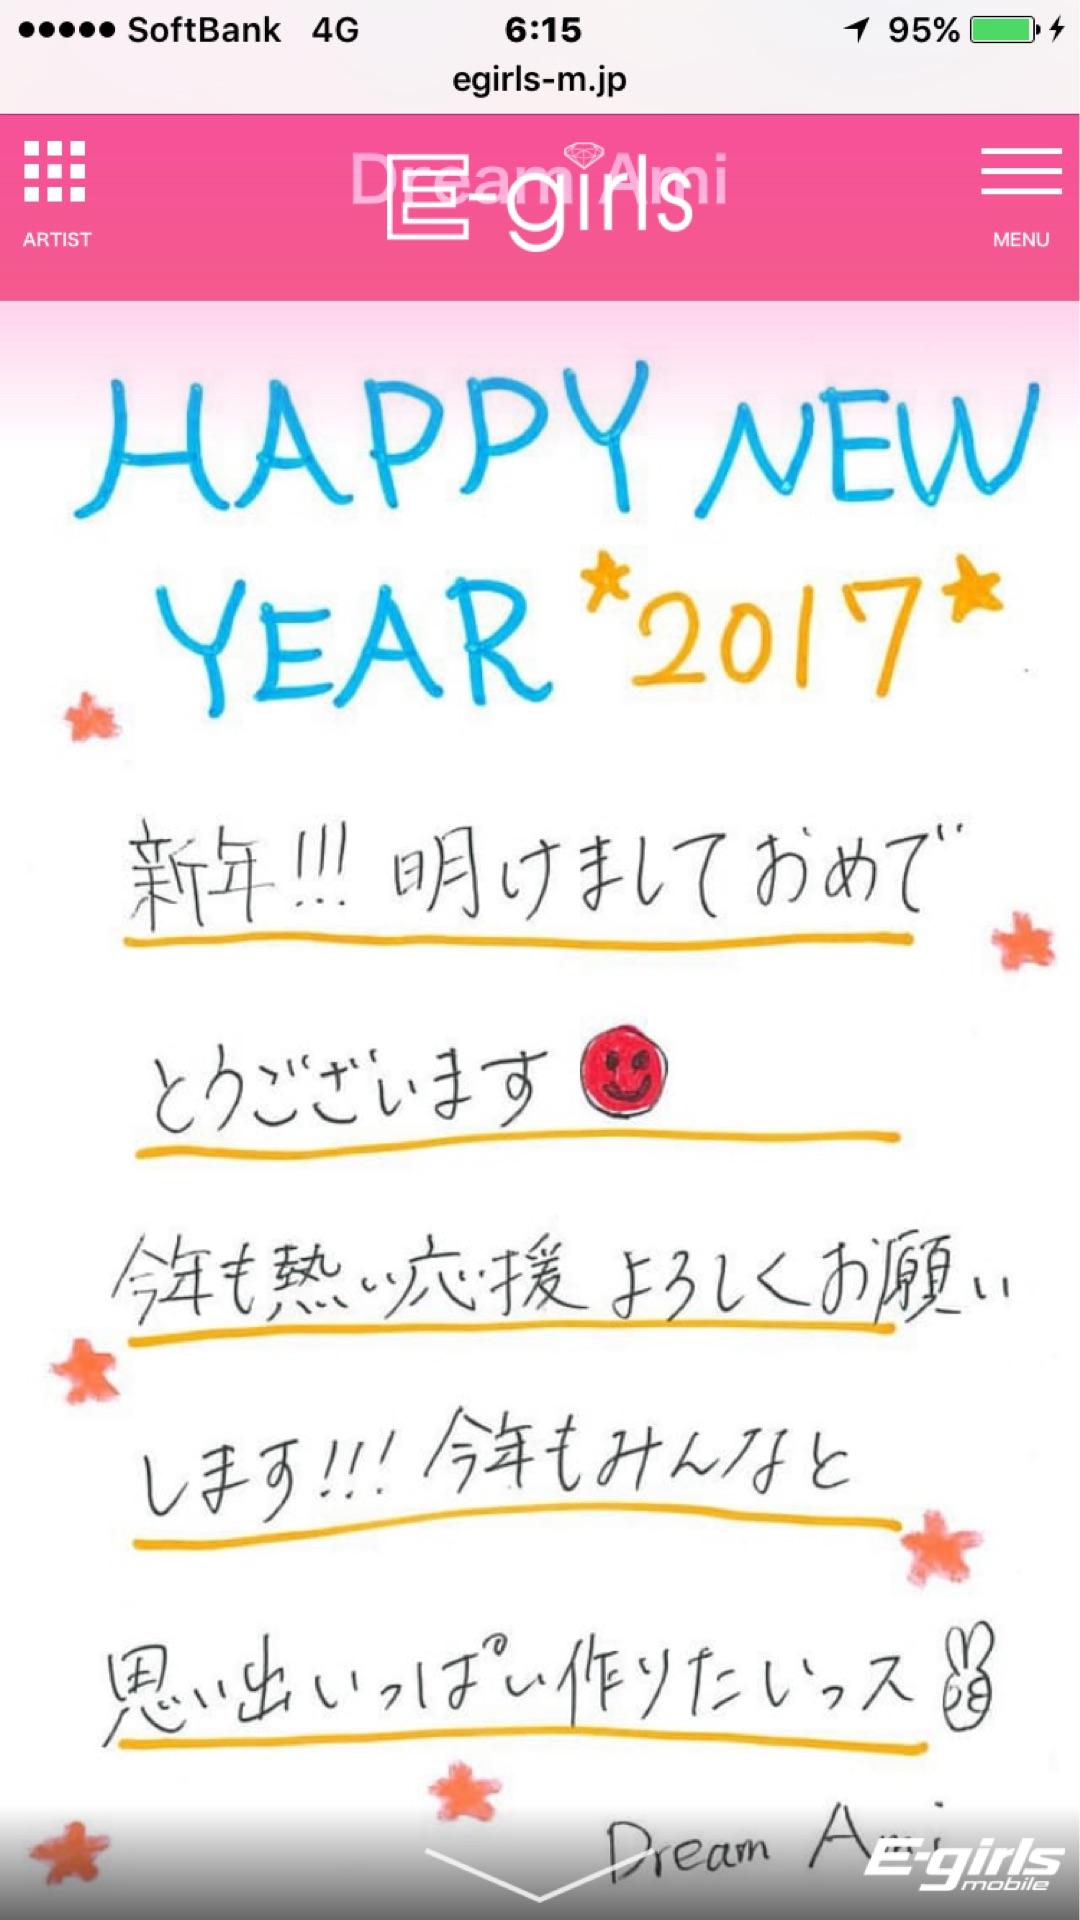 SoftBank 4G 6:15 95%
egirls-m.jp
Dream Ami
E-girls
ARTIST
MENU
HAPPY NEW
YEAR 2017
新年!!! 明けましておめで
とうございます
今年も熱い応援よろしくお願い
します!!! 今年もみんなと
思い出いっぱい作りたいっス
Dream Ami
E-girls
mobile